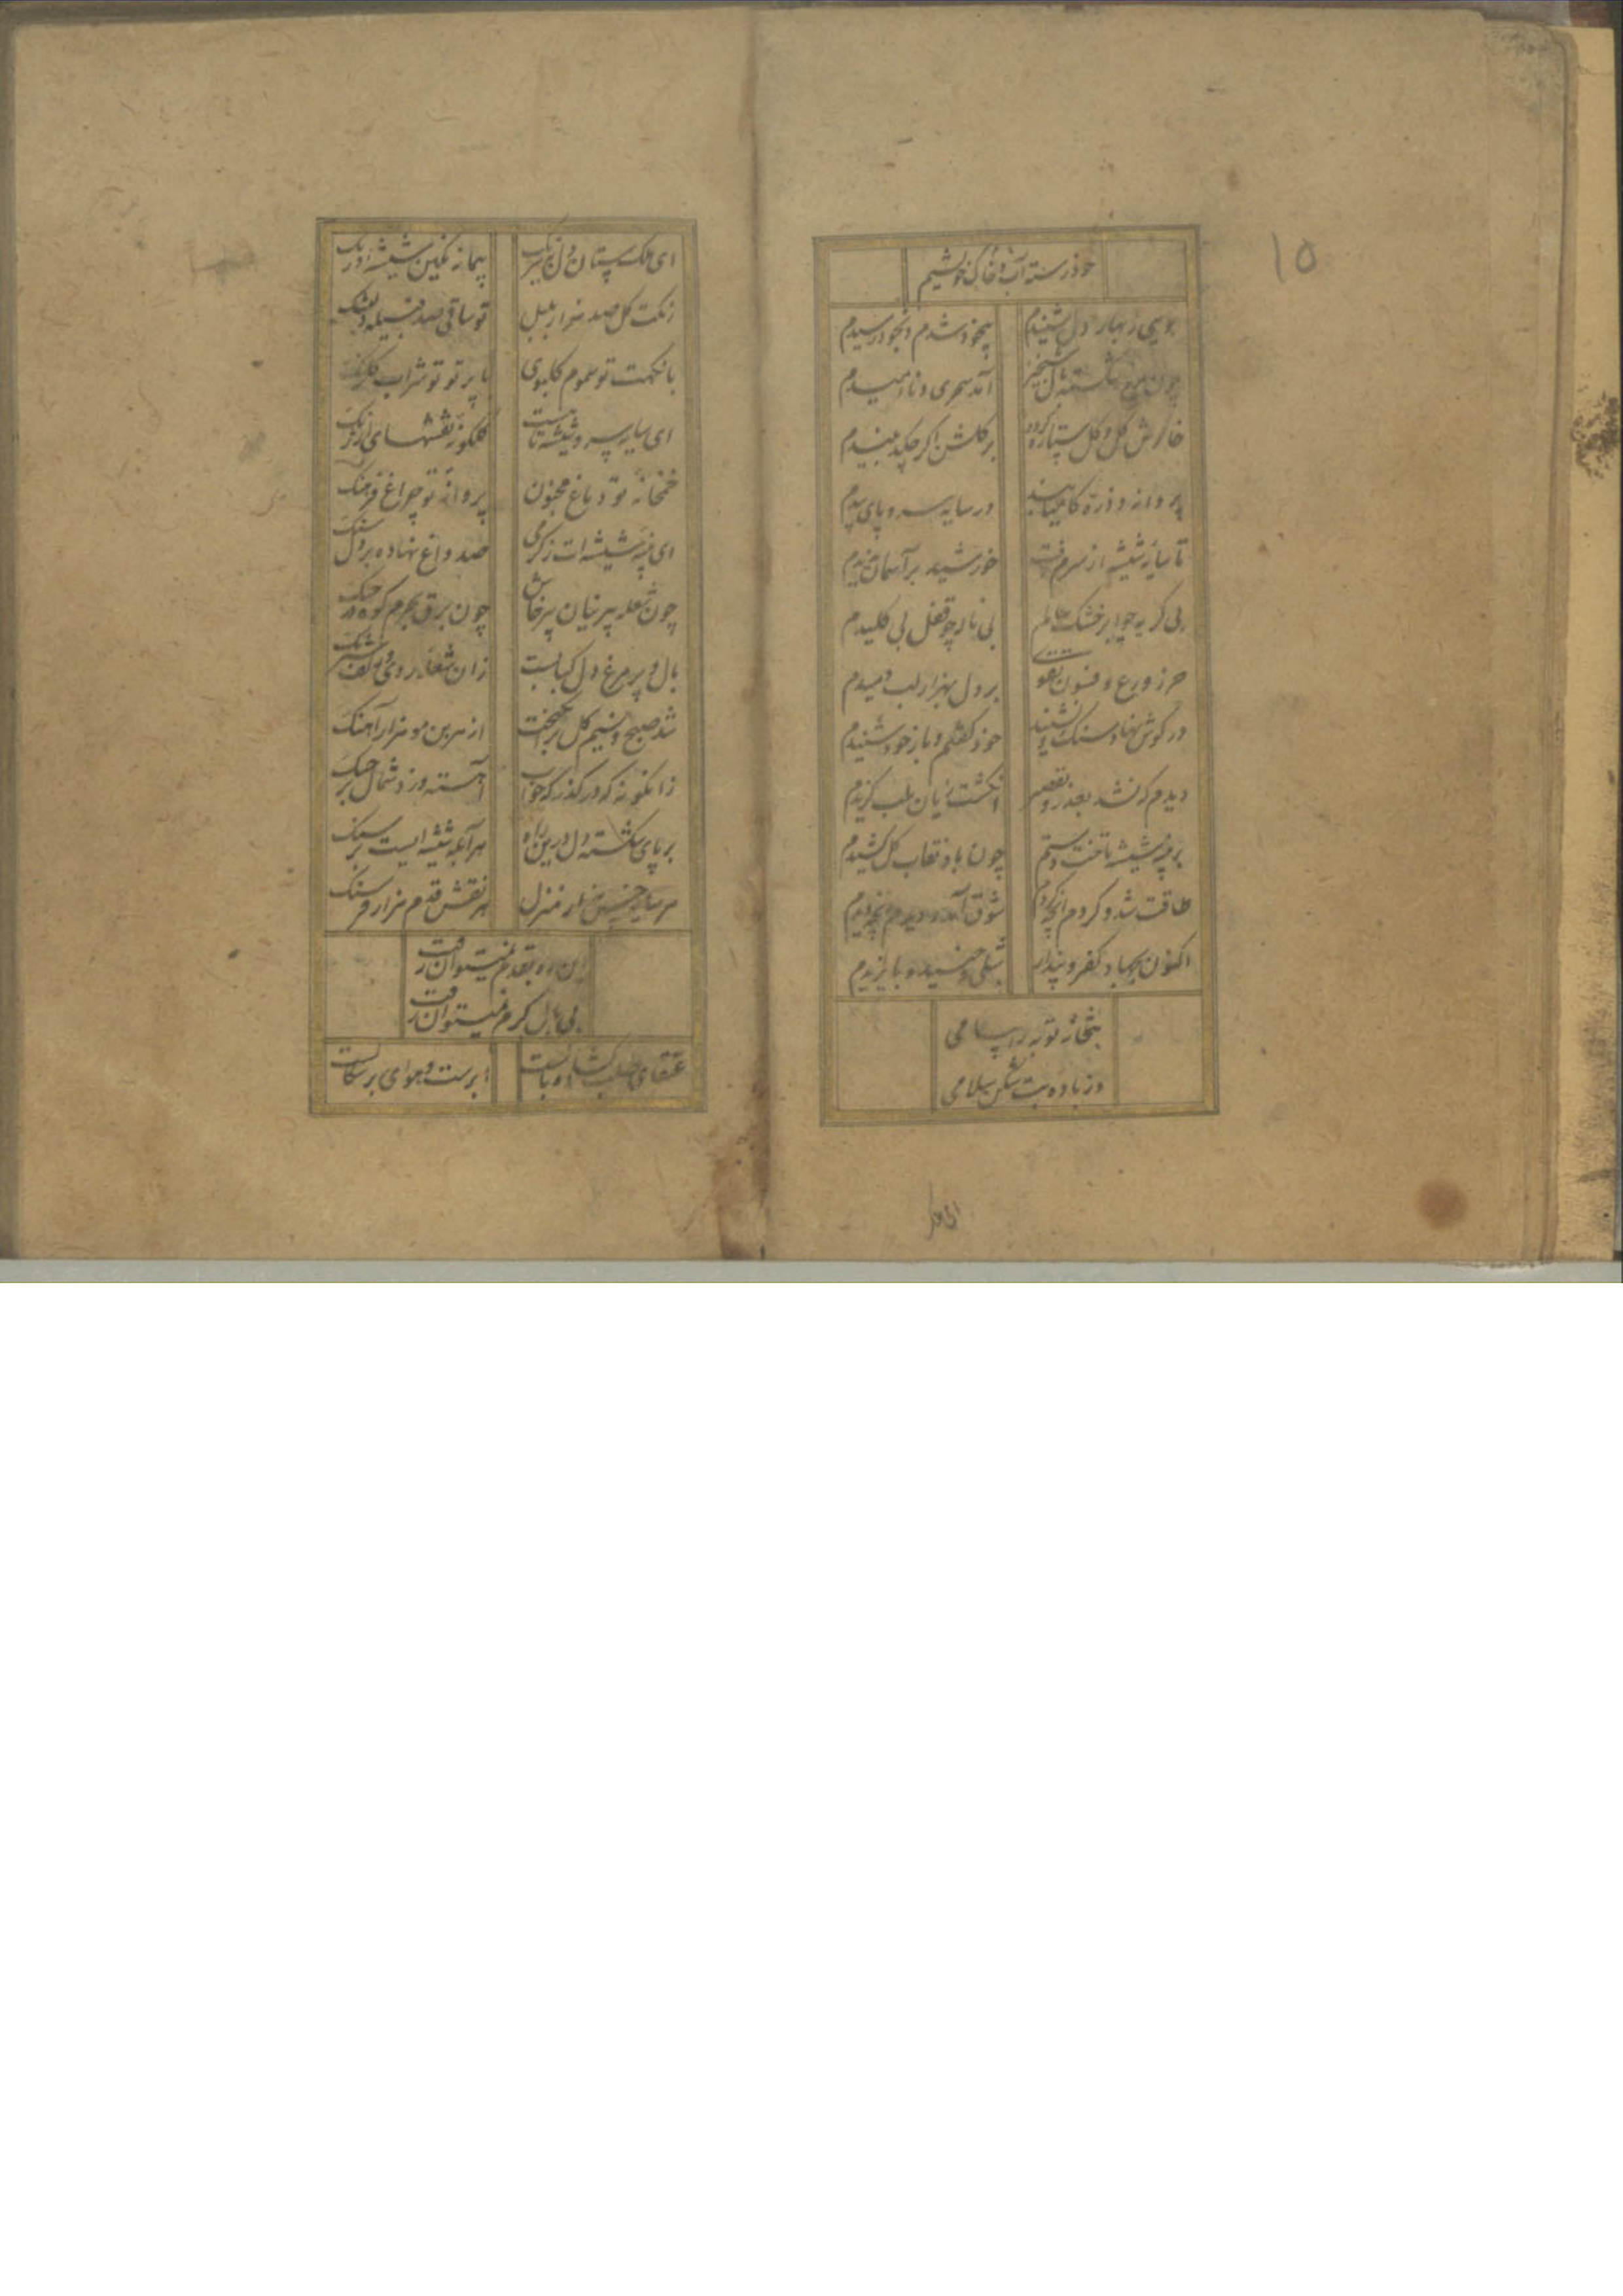 ۱۵
خود رسته آب و خاک خویشیم
بویی ز بهار دل شنیدم
بیخود شدم و بخود رسیدم
چون موج شکسته دل
آمد سحری و نا امیدم
خارش گل و گل ستاره گردد
بر گلشن اگر چکد نبیدم
پروانه و ذره کامیابند
در سایه سرو و پای بیدم
تا سایه شیشه از سرم رفت
خورشید بر آسمان ندیدم
بی گریه چو ابر خشک سالم
بی ناله چو قفل بی کلیدم
حرز ورع و فسون تقوی
بر دل بهزار لب دمیدم
در گوش نهاد سنگ و نشنید
خود گفتم و باز خود شنیدم
دیدم که نشد بعذر و تقصیر
انگشت زیان بلب گزیدم
بر پنبه شیشه تاخت دستم
چون باد نقاب گل کشیدم
طاقت شد و کردم آنچه کردم
شوق آمد و دیدم آنچه دیدم
اکنون بجهاد کفر و پندار
شبلی و جنید و بایزیدم
بتخانه توبه را
وز باده بت شکن سلامی
ای ملک
ای ملک ستان دل ز نیرنگ
پیمانه نگین شیشه اورنگ
رنگت گل صد هزار بلبل
تو ساقی صد قبیله دلتنگ
با نکهت تو سموم گلبوی
با پرتو تو شراب گلرنگ
ای سایه سرو شیشه تا هست
گلگونه نقشهای ارژنگ
خمخانه تو دماغ مجنون
پروانه تو چراغ فرهنگ
ای پنبه شیشه ات ز گرمی
صد داغ نهاده بر دل سنگ
چون شعله پرنیان پرخاش
چون برق بجرم کوه در جنگ
بال و پر مرغ دل کبابست
زان شعله روی
شد صبح و نسیم گل برانگیخت
از هر بن مو هزار آهنگ
زانگونه که در گذرگه خواب
آهسته وزد شمال بر چنگ
بر پای شکسته دل درین راه
هر آبله شیشه ایست بر سنگ
هر سایه خس هزار منزل
هر نقش قدم هزار فرسنگ
این ره بقدم نمیتوان رفت
بی بال کرم نمیتوان رفت
عنقای طلب گشاده بالست
ابرست و هوای برشکالست